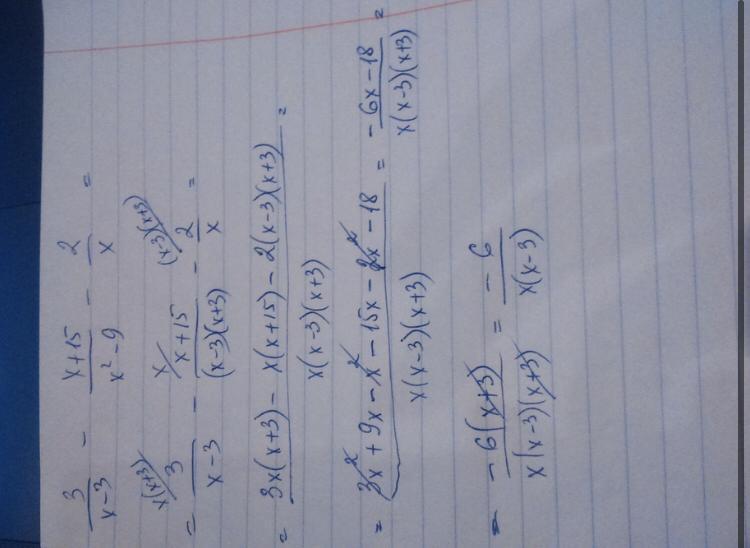 3/(x-3) - (x+15)/(x²-9) - 2/x =
= 3/(x-3) x(x+3) - (x+15)/((x-3)(x+3)) x - 2/x (x-3)(x+3) =
= (3x(x+3) - x(x+15) - 2(x-3)(x+3))/(x(x-3)(x+3)) =
= (3x² + 9x - x² - 15x - 2x² - 18)/(x(x-3)(x+3)) = (-6x-18)/(x(x-3)(x+3)) =
= (-6(x+3))/(x(x-3)(x+3)) = (-6)/(x(x-3))